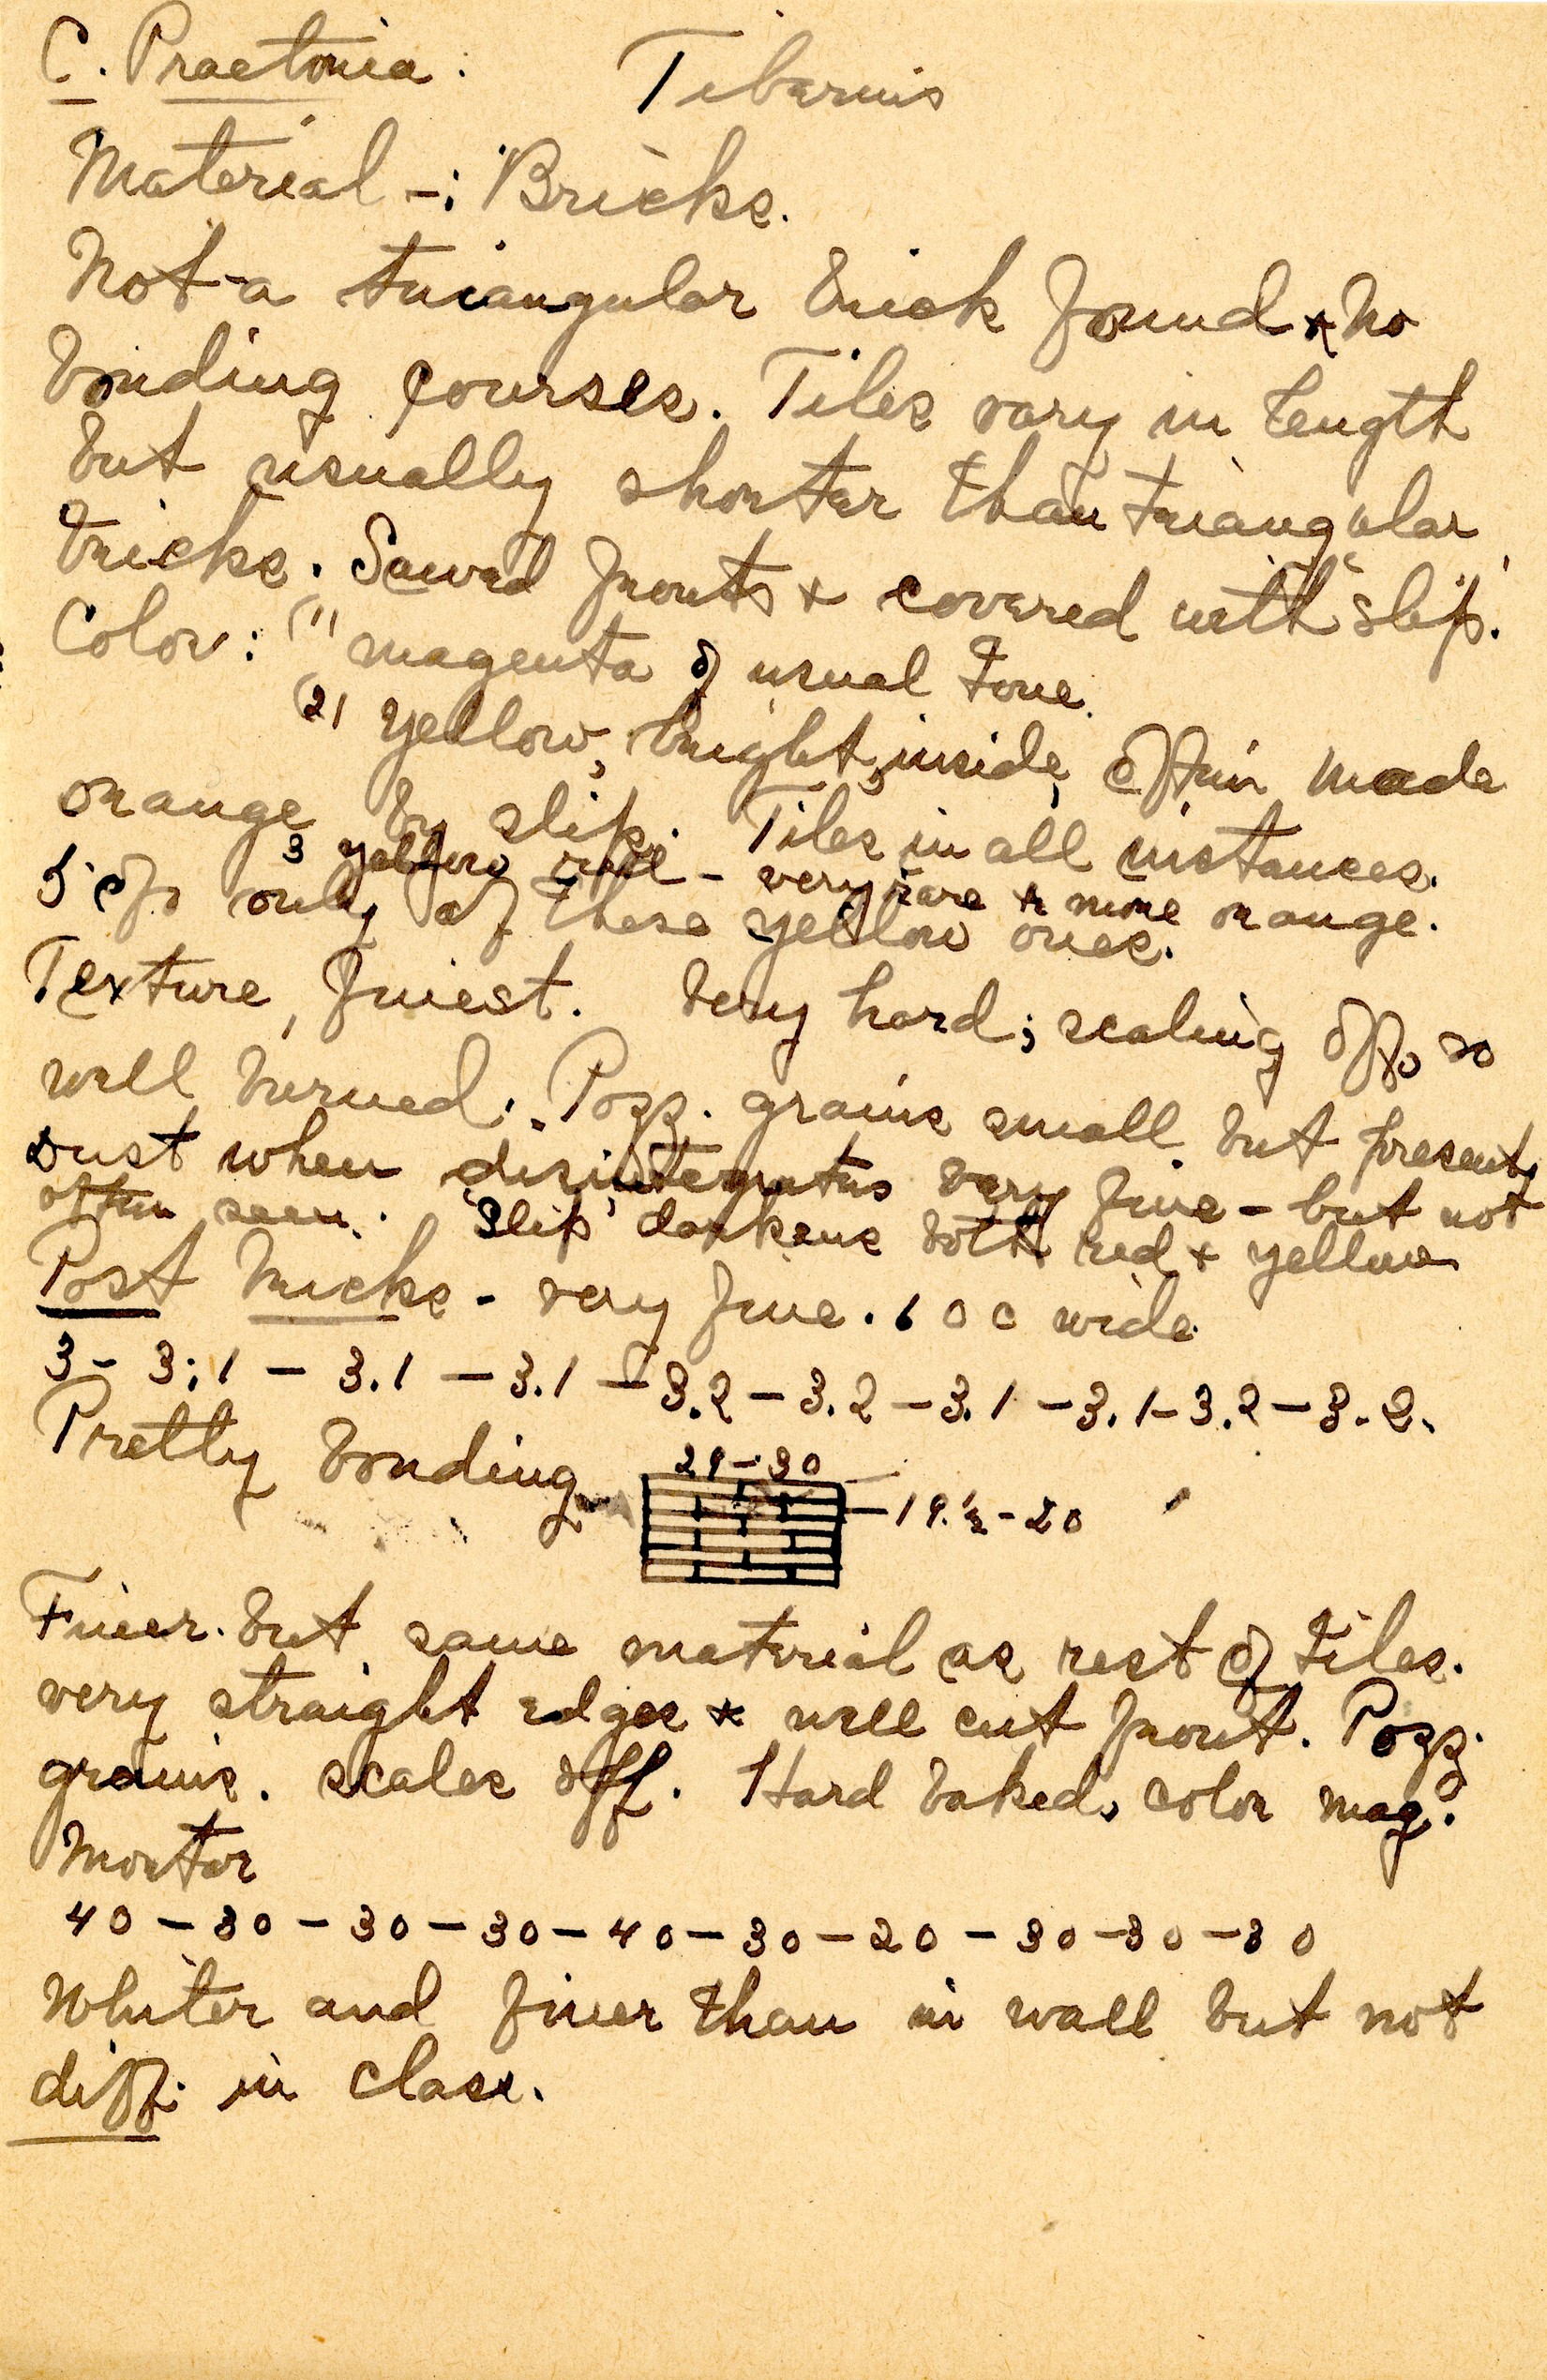 C. Praetoria: Tiberius
Material -: Bricks.
Not a triangular brick found & no
bonding courses. Tiles vary in length
but usually shorter than triangular
bricks. Sawed fronts & covered with slip.
Color: (1) magenta of usual tone.
(2) Yellow, bright inside, often made
orange by slip. Tiles in all instances.
3 yellow red - very rare & more orange.
5% only of these yellow ones.
Texture, finest. Very hard; scaling off, so
well burned. Pozz. grains small but present,
dust when disintegrates very fine - but not
often seen. 'Slip' darkens both red & yellow
Post bricks - very fine. 600 wide
3 - 3.1 - 3.1 - 3.1 - 3.2 - 3.2 - 3.1 - 3.1 - 3.2 - 3.2.
Pretty bonding
29 - 30
- 19.½ - 20
Finer but same material as rest of tiles.
very straight edges & well cut front. Pozz.
grains. scales off. Hard baked, color mag.
Mortar
40 - 30 - 30 - 30 - 40 - 30 - 20 - 30 - 30 - 30
Whiter and finer than in wall but not
diff. in class.